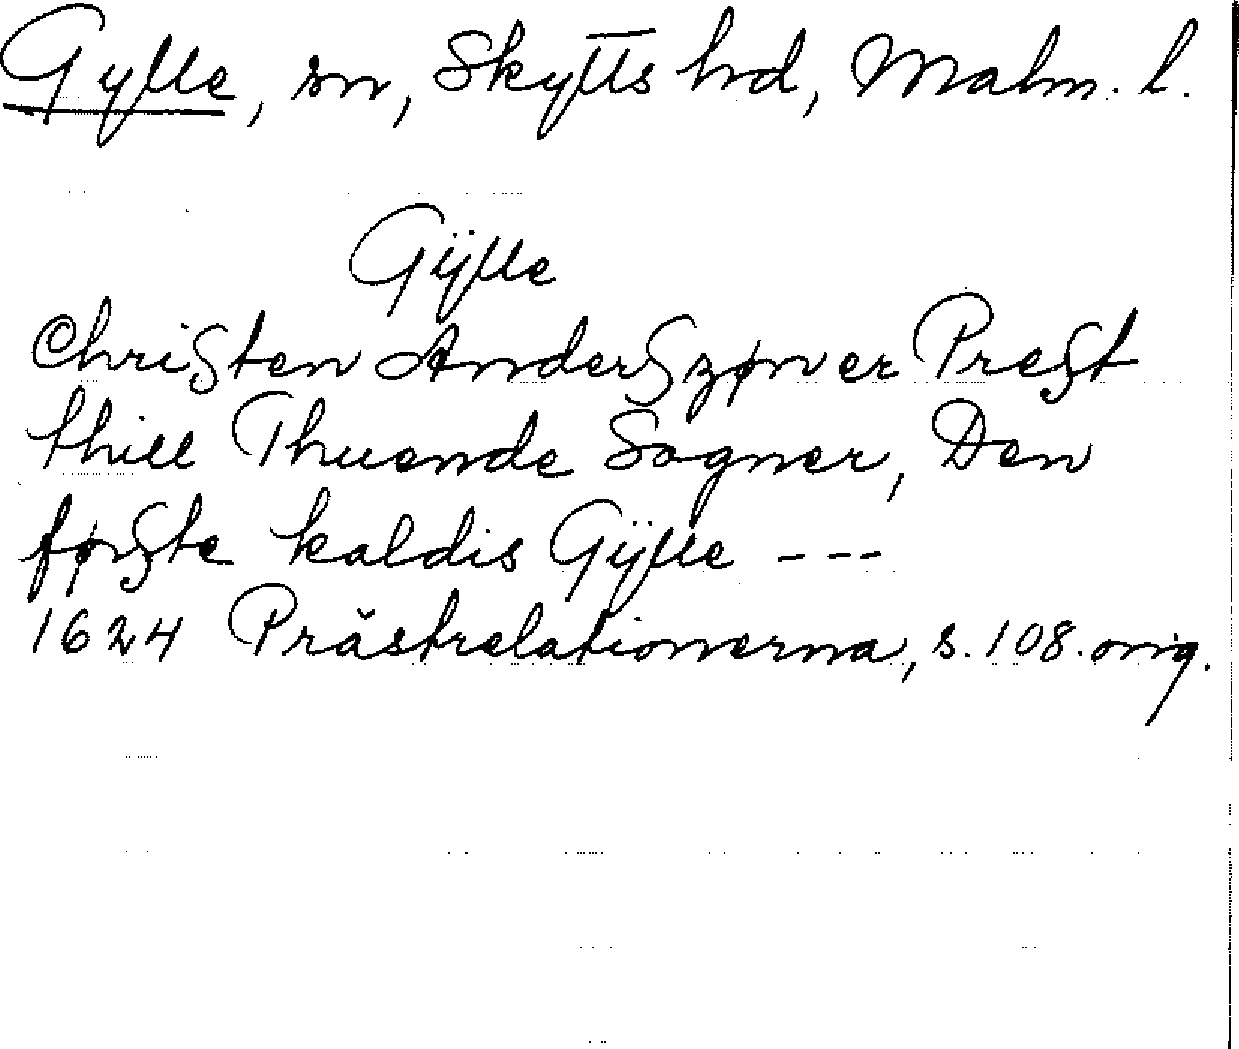 Gylle, sn, Skytts hd, Malm. l.
Gÿlle
Christen Anderszøn er Prest
thill Thuende Sogner, Den
første kaldis Gÿlle ---
1624 Prästrelationerna, s. 108. orig.